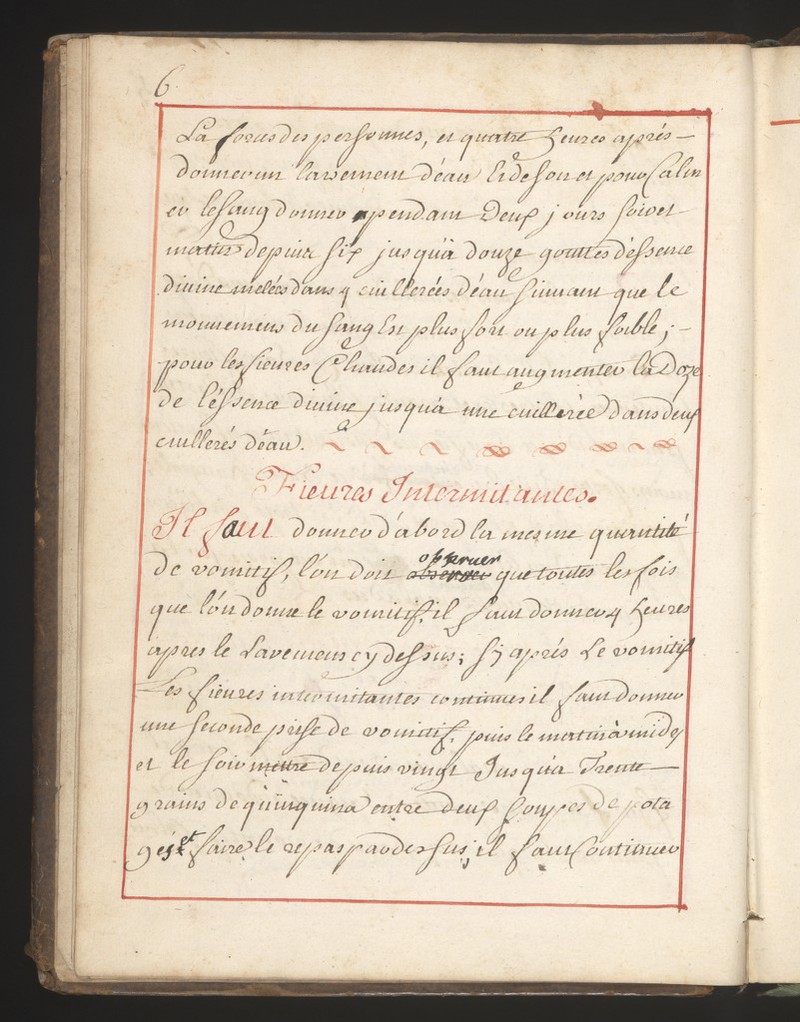 6
La force des personnes, et quatre heures aprés —
donner un lavement d'éau tiede son et pour Calm
er le sang donner pendant Deux jours soir et
matin depuis six jusqu'à douze gouttes d'éssence
Divine melées dans 4 cuillerées d'éau suivant que le
mouvement du sang Est plus fort ou plus foible; -
pour les fievres Chaudes il faut augmenter la Doze
de l'éssence divine jusqu'a une cuillerée Dans deux
cuillerés d'éau.
Fievres Intermitantes.
Il faut donner d'abord la mesme quantité
de vomitif, l'on doit observer que toutes les fois
que l'on donne le vomitif, il faut donner 4 heures
apres le Lavement cy dessus; sy aprés Le vomitif
Les fievres intermitantes continues il faut donner
une seconde prise de vomitif, puis le matin à midy
et le soir mettre depuis vingt Jusqu'a Trente —
grains de quinquina entre deux soupes de pota
gés et faire le repas par dessus, il faut Continuer